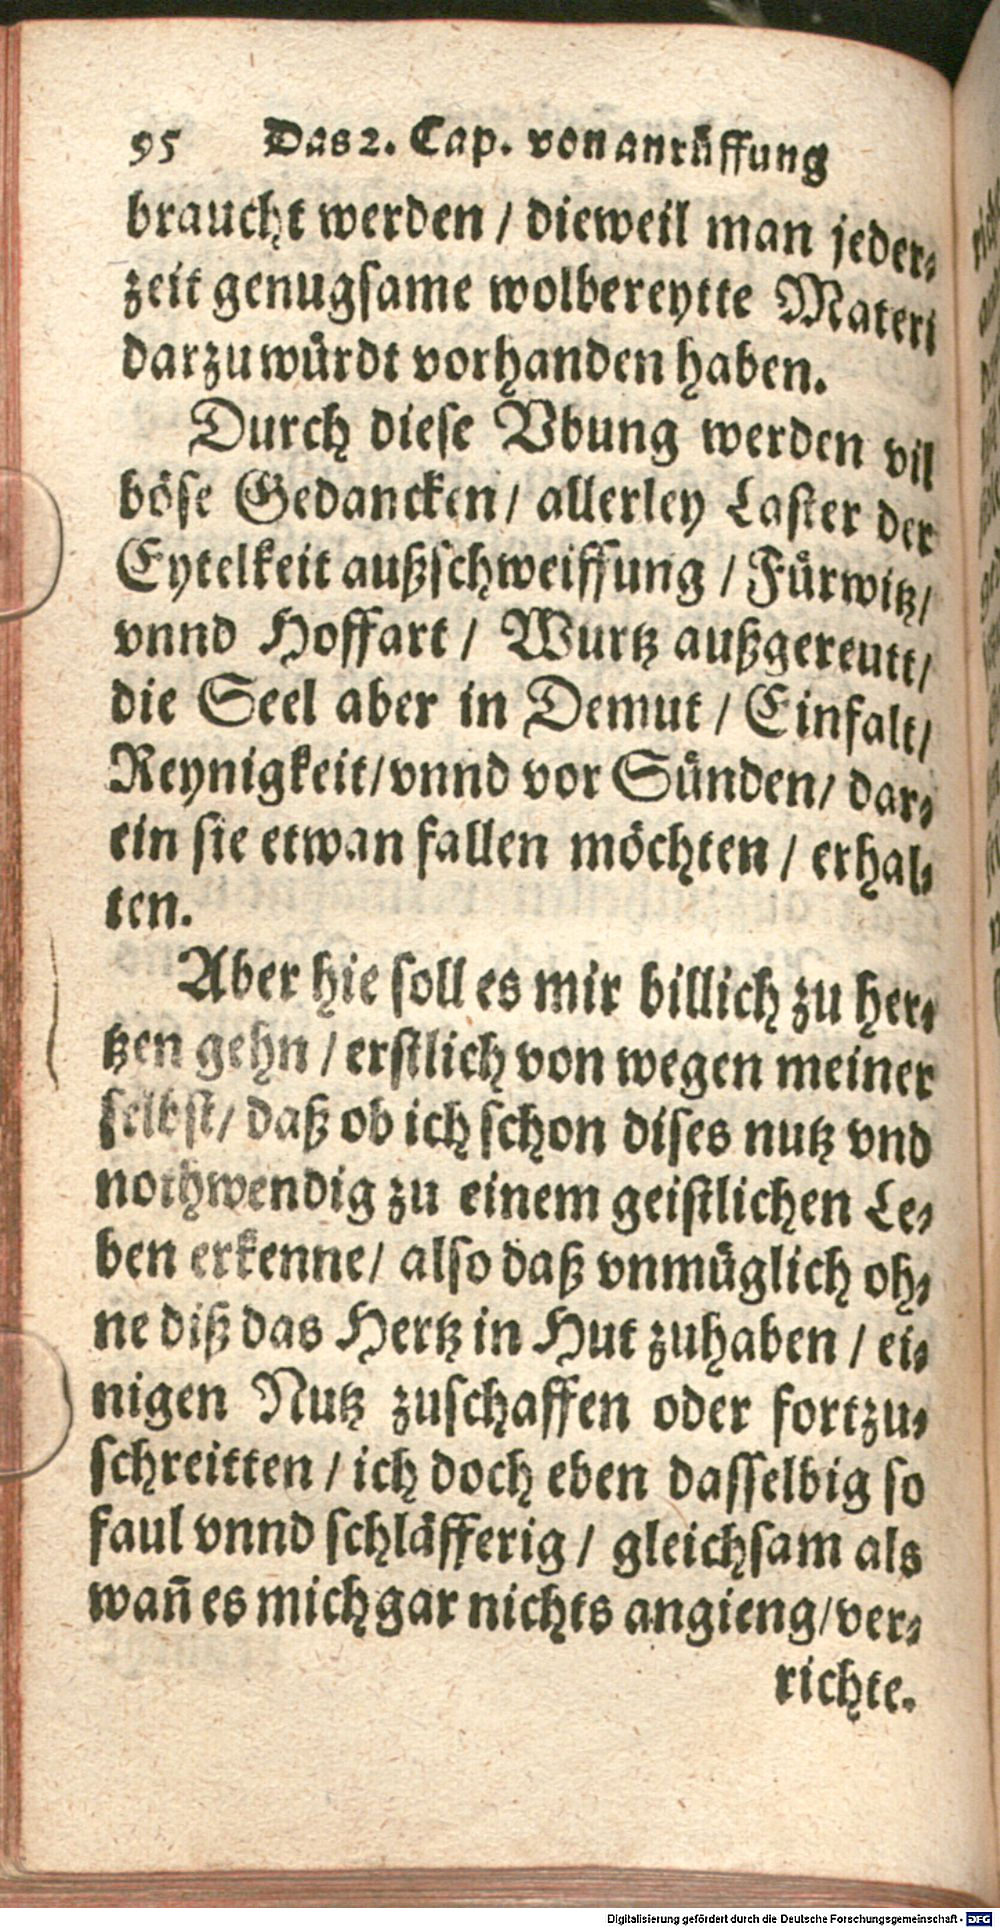 95 Das 2. Cap. von anrüffung
braucht werden / dieweil man jeder-
zeit genugsame wolbereytte Materi
darzu würdt vorhanden haben.
Durch diese Vbung werden vil
böse Gedancken / allerley Laster der
Eytelkeit außschweiffung / Fürwitz /
vnnd Hoffart / Wurtz außgereutt /
die Seel aber in Demut / Einfalt /
Reynigkeit / vnnd vor Sünden / dar-
ein sie etwan fallen möchten / erhal-
ten.
Aber hie soll es mir billich zu her-
tzen gehn / erstlich von wegen meiner
selbst / daß ob ich schon dises nutz vnd
nothwendig zu einem geistlichen Le-
ben erkenne / also daß vnmüglich oh-
ne diß das Hertz in Hut zuhaben / ei-
nigen Nutz zuschaffen oder fortzu-
schreitten / ich doch eben dasselbig so
faul vnnd schläfferig / gleichsam als
wañ es mich gar nichts angieng / ver-
richte.
Digitalisierung gefördert durch die Deutsche Forschungsgemeinschaft - DFG